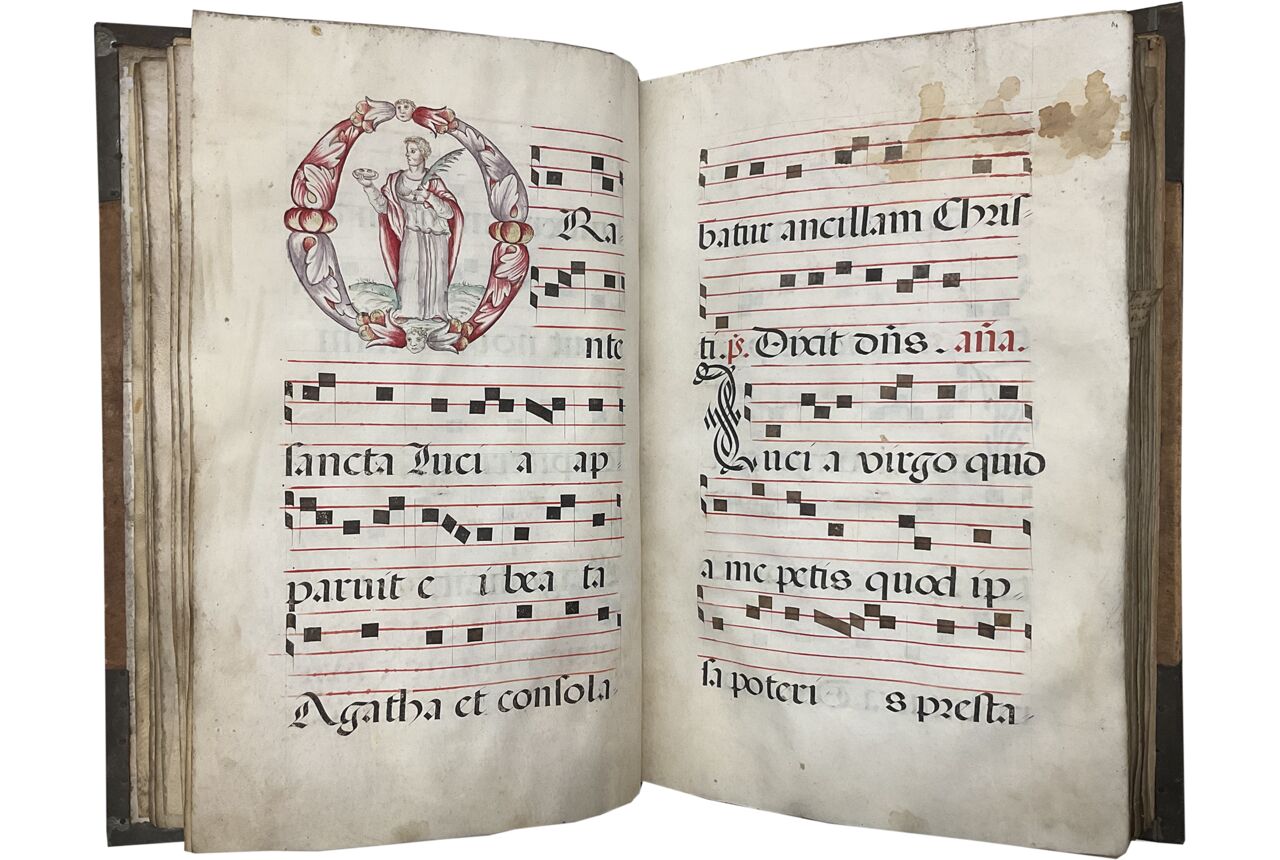 O Ra-
nte
sancta Luci a ap-
paruit e i bea ta
Agatha et consola-
batur ancillam Chris-
ti. ps. Dixit dñs. aña.
Luci a virgo quid
a me petis quod ip-
sa poteri s presta-